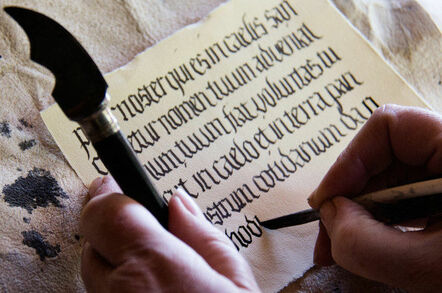 noster qui es in caelis san
nomen tuum adveniat
tuum fiat voluntas tu
in caelo et in terra pan
nostrum cotidianum da n
hodi